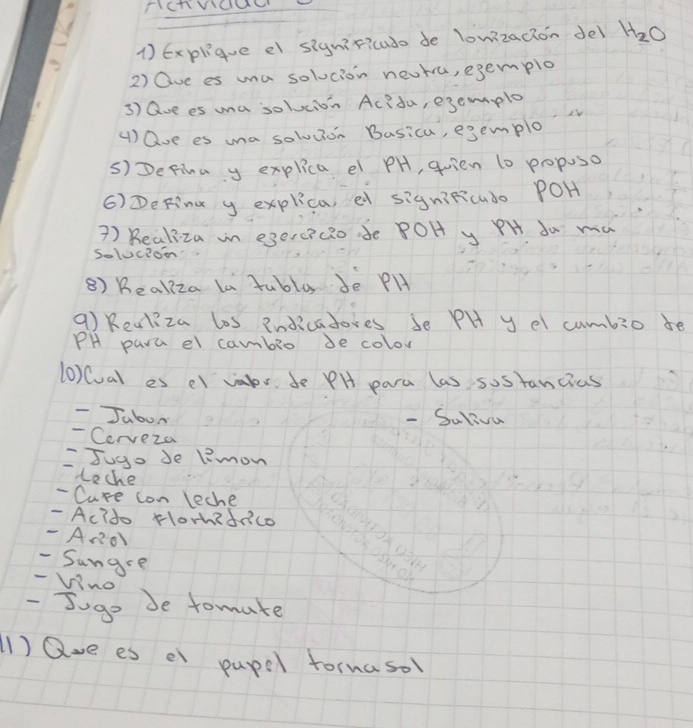 Actividad
1) Explique el significado de lonización del H2O
2) Que es una solución neutra, ezemplo
3) Que es una solución Acida, ezemplo
4) Que es una solución Basica, ezemplo
5) Defina y explica el PH, quien lo propuso
6) Defina y explica el significado POH
7) Realiza un ezercicio de POH y PH da ma
solución
8) Realiza la tabla de PH
9) Realiza los indicadores de PH y el cambio de
PH para el cambio de color
10) Cual es el valor de PH para las sustancias
- Jabon
- Saliva
- Cerveza
- Jugo de limon
- Leche
- Cafe con leche
- Acido Florhidrico
- Ariol
- Sangre
- Vino
- Jugo de tomate
11) Que es el papel tornasol